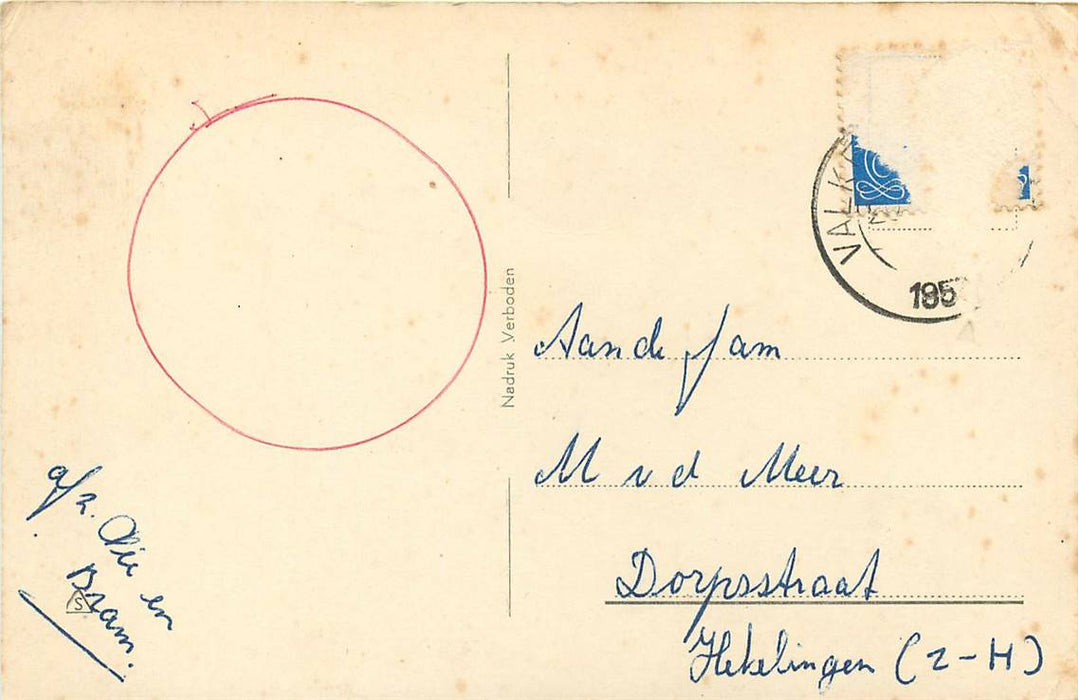 VALK
195
Nadruk Verboden
Aan de fam
M v d Meer
Dorpsstraat
Hekelingen (Z-H)
a/z. Rie en
Bram.
S